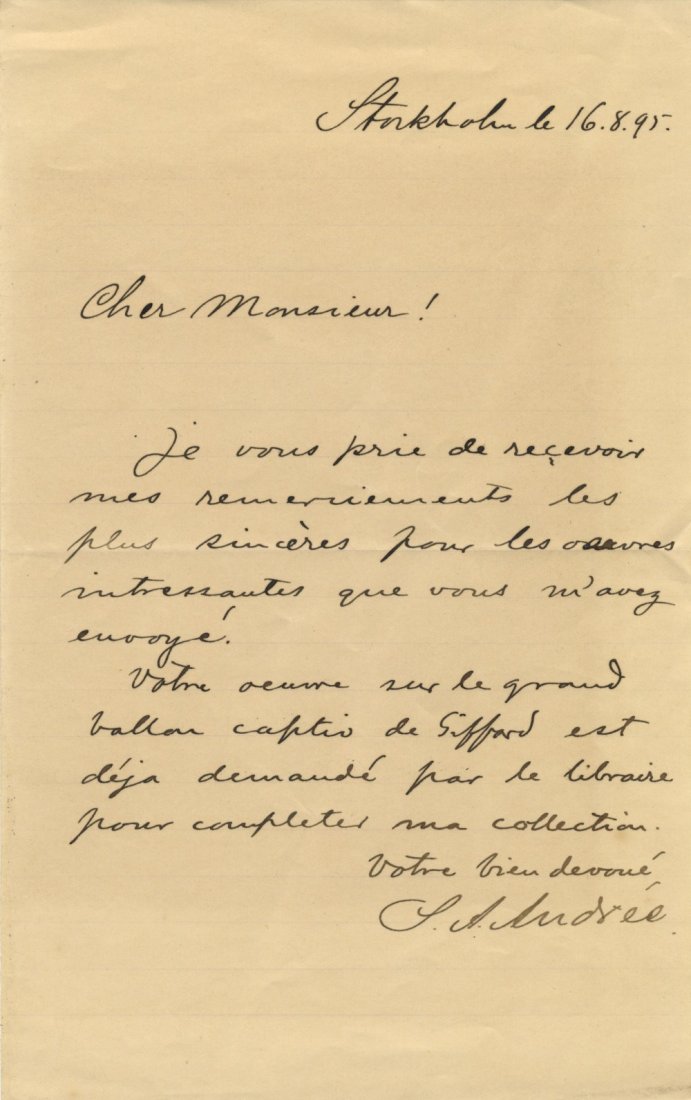 Stockholm le 16.8.95.
Cher Monsieur!
Je vous prie de reçevoir
mes remerciements les
plus sincères pour les oeuvres
intressantes que vous m'avez
envoyé.
Votre oeuvre sur le grand
ballon captiv de Giffard est
déja demandé par le libraire
pour completer ma collection.
Votre bien devoué
S. A. Andrée